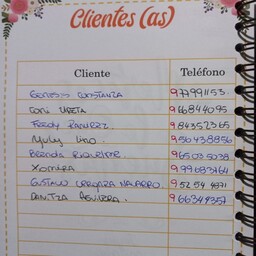 Clientes (as)
Cliente Teléfono
Genesis Constanza 977991153.
Coni Ureta 966844095
Fredy Ramirez. 984352365
Yuly Lino. 956438856
Brenda Riquelme 965035038
Xiomira 999683764
Gustavo Vergara Navarro. 952544971
Danitza Aguilera. 966349357